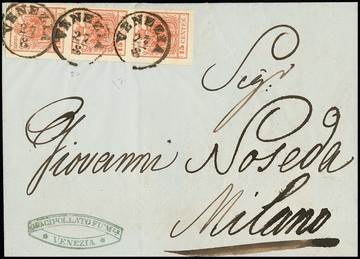 VENEZIA VENEZIA VENEZIA
15 CENTES
Sigr.
Giovanni Noseda
Milano
VENEZIA